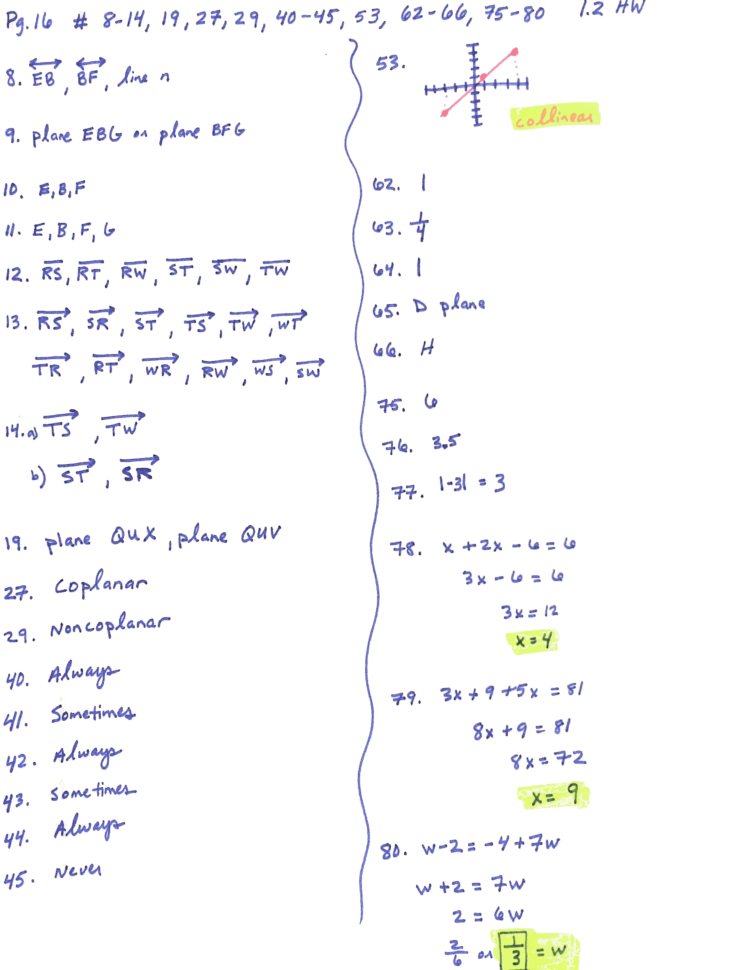 Pg. 16 # 8-14, 19, 27, 29, 40-45, 53, 62-66, 75-80 1.2 HW
8. EB, BF, line n
9. plane EBG or plane BFG
10. E, B, F
11. E, B, F, G
12. RS, RT, RW, ST, SW, TW
13. RS, SR, ST, TS, TW, WT
TR, RT, WR, RW, WS, SW
14. a) TS, TW
b) ST, SR
19. plane QUX, plane QUV
27. Coplanar
29. Noncoplanar
40. Always
41. Sometimes
42. Always
43. Sometimes
44. Always
45. Never
53.
collinear
62. 1
63. 1/4
64. 1
65. D plane
66. H
75. 6
76. 3.5
77. |-3| = 3
78. x + 2x - 6 = 6
3x - 6 = 6
3x = 12
x = 4
79. 3x + 9 + 5x = 81
8x + 9 = 81
8x = 72
x = 9
80. w - 2 = -4 + 7w
w + 2 = 7w
2 = 6w
2/6 or 1/3 = w